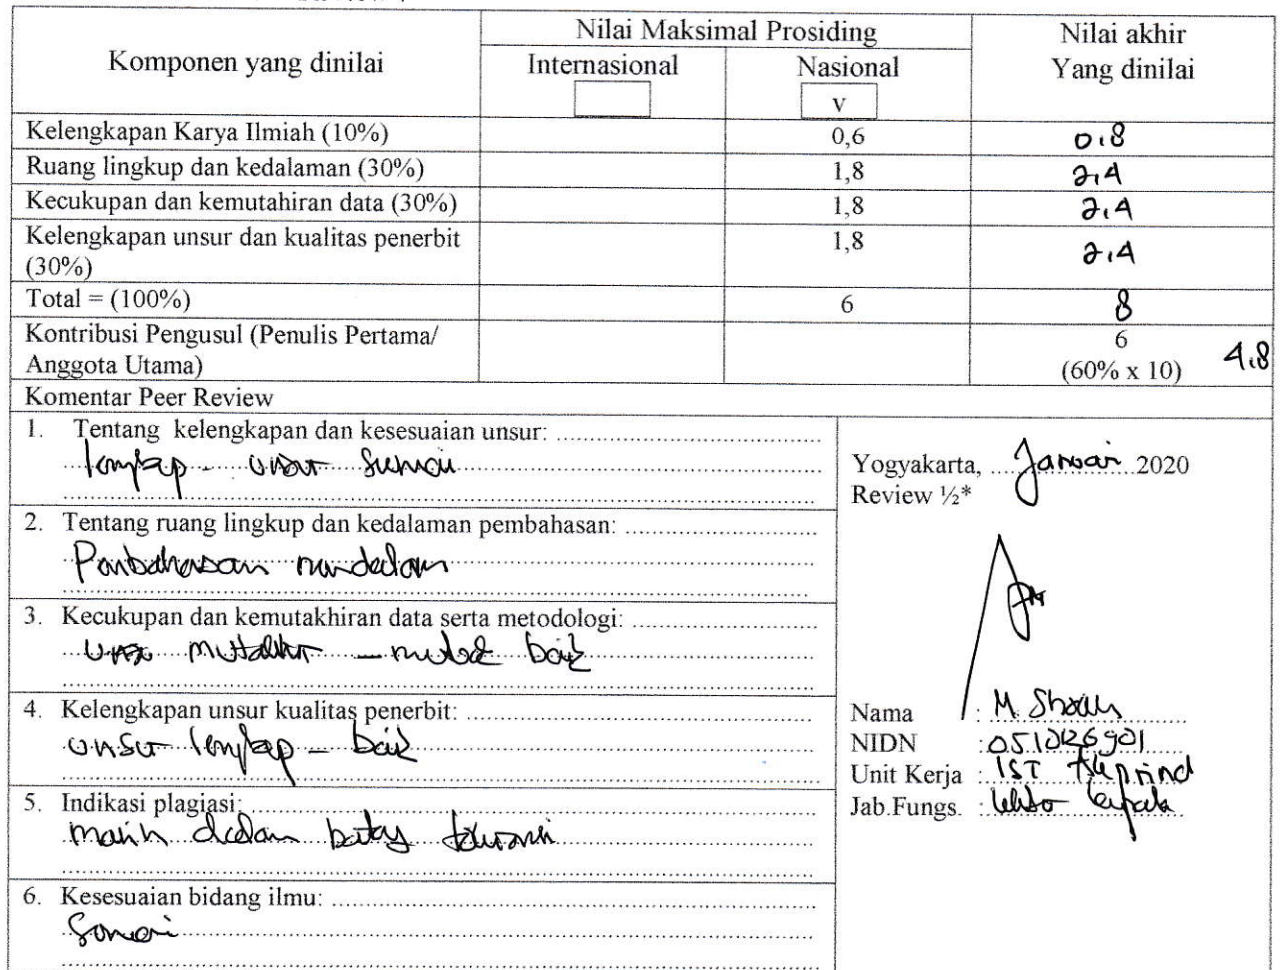 Komponen yang dinilai
Nilai Maksimal Prosiding
Nilai akhir
Yang dinilai
Internasional
Nasional
v
Kelengkapan Karya Ilmiah (10%) 0,6 0.8
Ruang lingkup dan kedalaman (30%) 1,8 2,4
Kecukupan dan kemutahiran data (30%) 1,8 2.4
Kelengkapan unsur dan kualitas penerbit (30%) 1,8 2,4
Total = (100%) 6 8
Kontribusi Pengusul (Penulis Pertama/
Anggota Utama)
6
(60% x 10) 4.8
Komentar Peer Review
1. Tentang kelengkapan dan kesesuaian unsur:
lengkap - unsur sesuai
2. Tentang ruang lingkup dan kedalaman pembahasan:
Pembahasan mendalam
3. Kecukupan dan kemutakhiran data serta metodologi:
mutakhir - baik
4. Kelengkapan unsur kualitas penerbit:
unsur lengkap - baik
5. Indikasi plagiasi:
masih dalam batas toleransi
6. Kesesuaian bidang ilmu:
Sesuai
Yogyakarta, Januari 2020
Review ½*
Nama : M. Sholeh
NIDN :
Unit Kerja : IST Akprind
Jab.Fungs. : Lektor Kepala